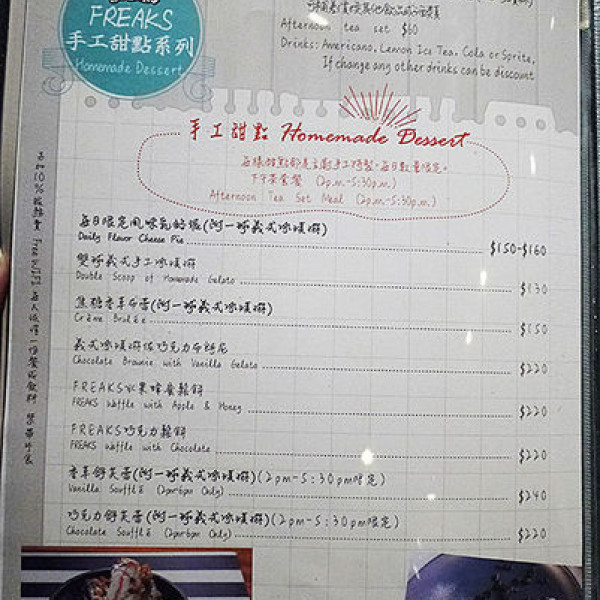 FREAKS
手工甜點系列
Homemade Dessert
Afternoon tea set $60
Drinks: Americano, Lemon Ice Tea, Cola or Sprite,
If change any other drinks can be discount
手工甜點 Homemade Dessert
每樣甜點都是主廚手工特製,每日數量限定。
下午茶套餐 (2p.m.-5:30p.m.)
Afternoon Tea Set Meal (2p.m.-5:30p.m.)
每日限定風味乳酪塔(附一球義式冰淇淋)
Daily Flavor Cheese Pie $150-$160
雙球義式手工冰淇淋
Double Scoop of Homemade Gelato $130
焦糖香草布蕾(附一球義式冰淇淋)
Créme Brulée $150
義式冰淇淋佐巧克力布朗尼
Chocolate Brownie with Vanilla Gelato $220
FREAKS水果蜂蜜鬆餅
FREAKS Waffle with Apple & Honey $220
FREAKS巧克力鬆餅
FREAKS Waffle with Chocolate $220
香草舒芙蕾(附一球義式冰淇淋)(2pm-5:30pm限定)
Vanilla Soufflé (2pm-6pm Only) $240
巧克力舒芙蕾(附一球義式冰淇淋)(2pm-5:30pm限定)
Chocolate Soufflé (2pm-6pm Only) $220
10%服務費 Free WIFI 每人低消一份餐點或飲料